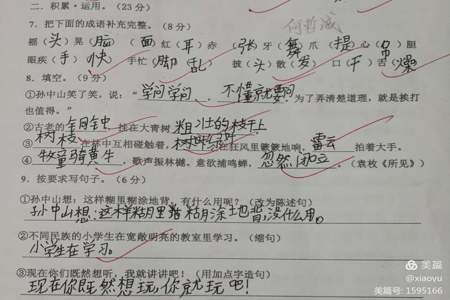 二、积累·运用。(23分)
7、把下面的成语补充完整。(8分)
摇(头)晃(脑) (面)红(耳)赤 (张)牙(舞)爪 (提)心(吊)胆
眼疾(手)(快) 手忙(脚)(乱) 披(头)散(发) 口(干)舌(燥)
8、填空。(9分)
①孙中山笑了笑,说:“学问学问、不懂就要问 为了弄清楚道理,就是挨打
也值得。”
②古老的 铜钟 挂在大青树 粗壮的枝干上
③ 树枝 在林中互相碰触着, 在狂风里簌簌地响, 雷云 拍着大手。
④ 牧童骑黄牛 、歌声振林樾。意欲捕鸣蝉, 忽然闭口立 。(袁枚《所见》)
9、按要求写句子。(6分)
①孙中山想:这样糊里糊涂地背,有什么用呢?(改为陈述句)
孙中山想:这样糊里糊涂地背,没什么用。
②不同民族的小学生在宽敞明亮的教室里学习。(缩句)
小学生在学习。
③现在你们既然想听,我就讲讲吧!(用加点字造句)
现在你既然想玩你就玩吧!
美篇
@xiaoyu
美篇号:1595166